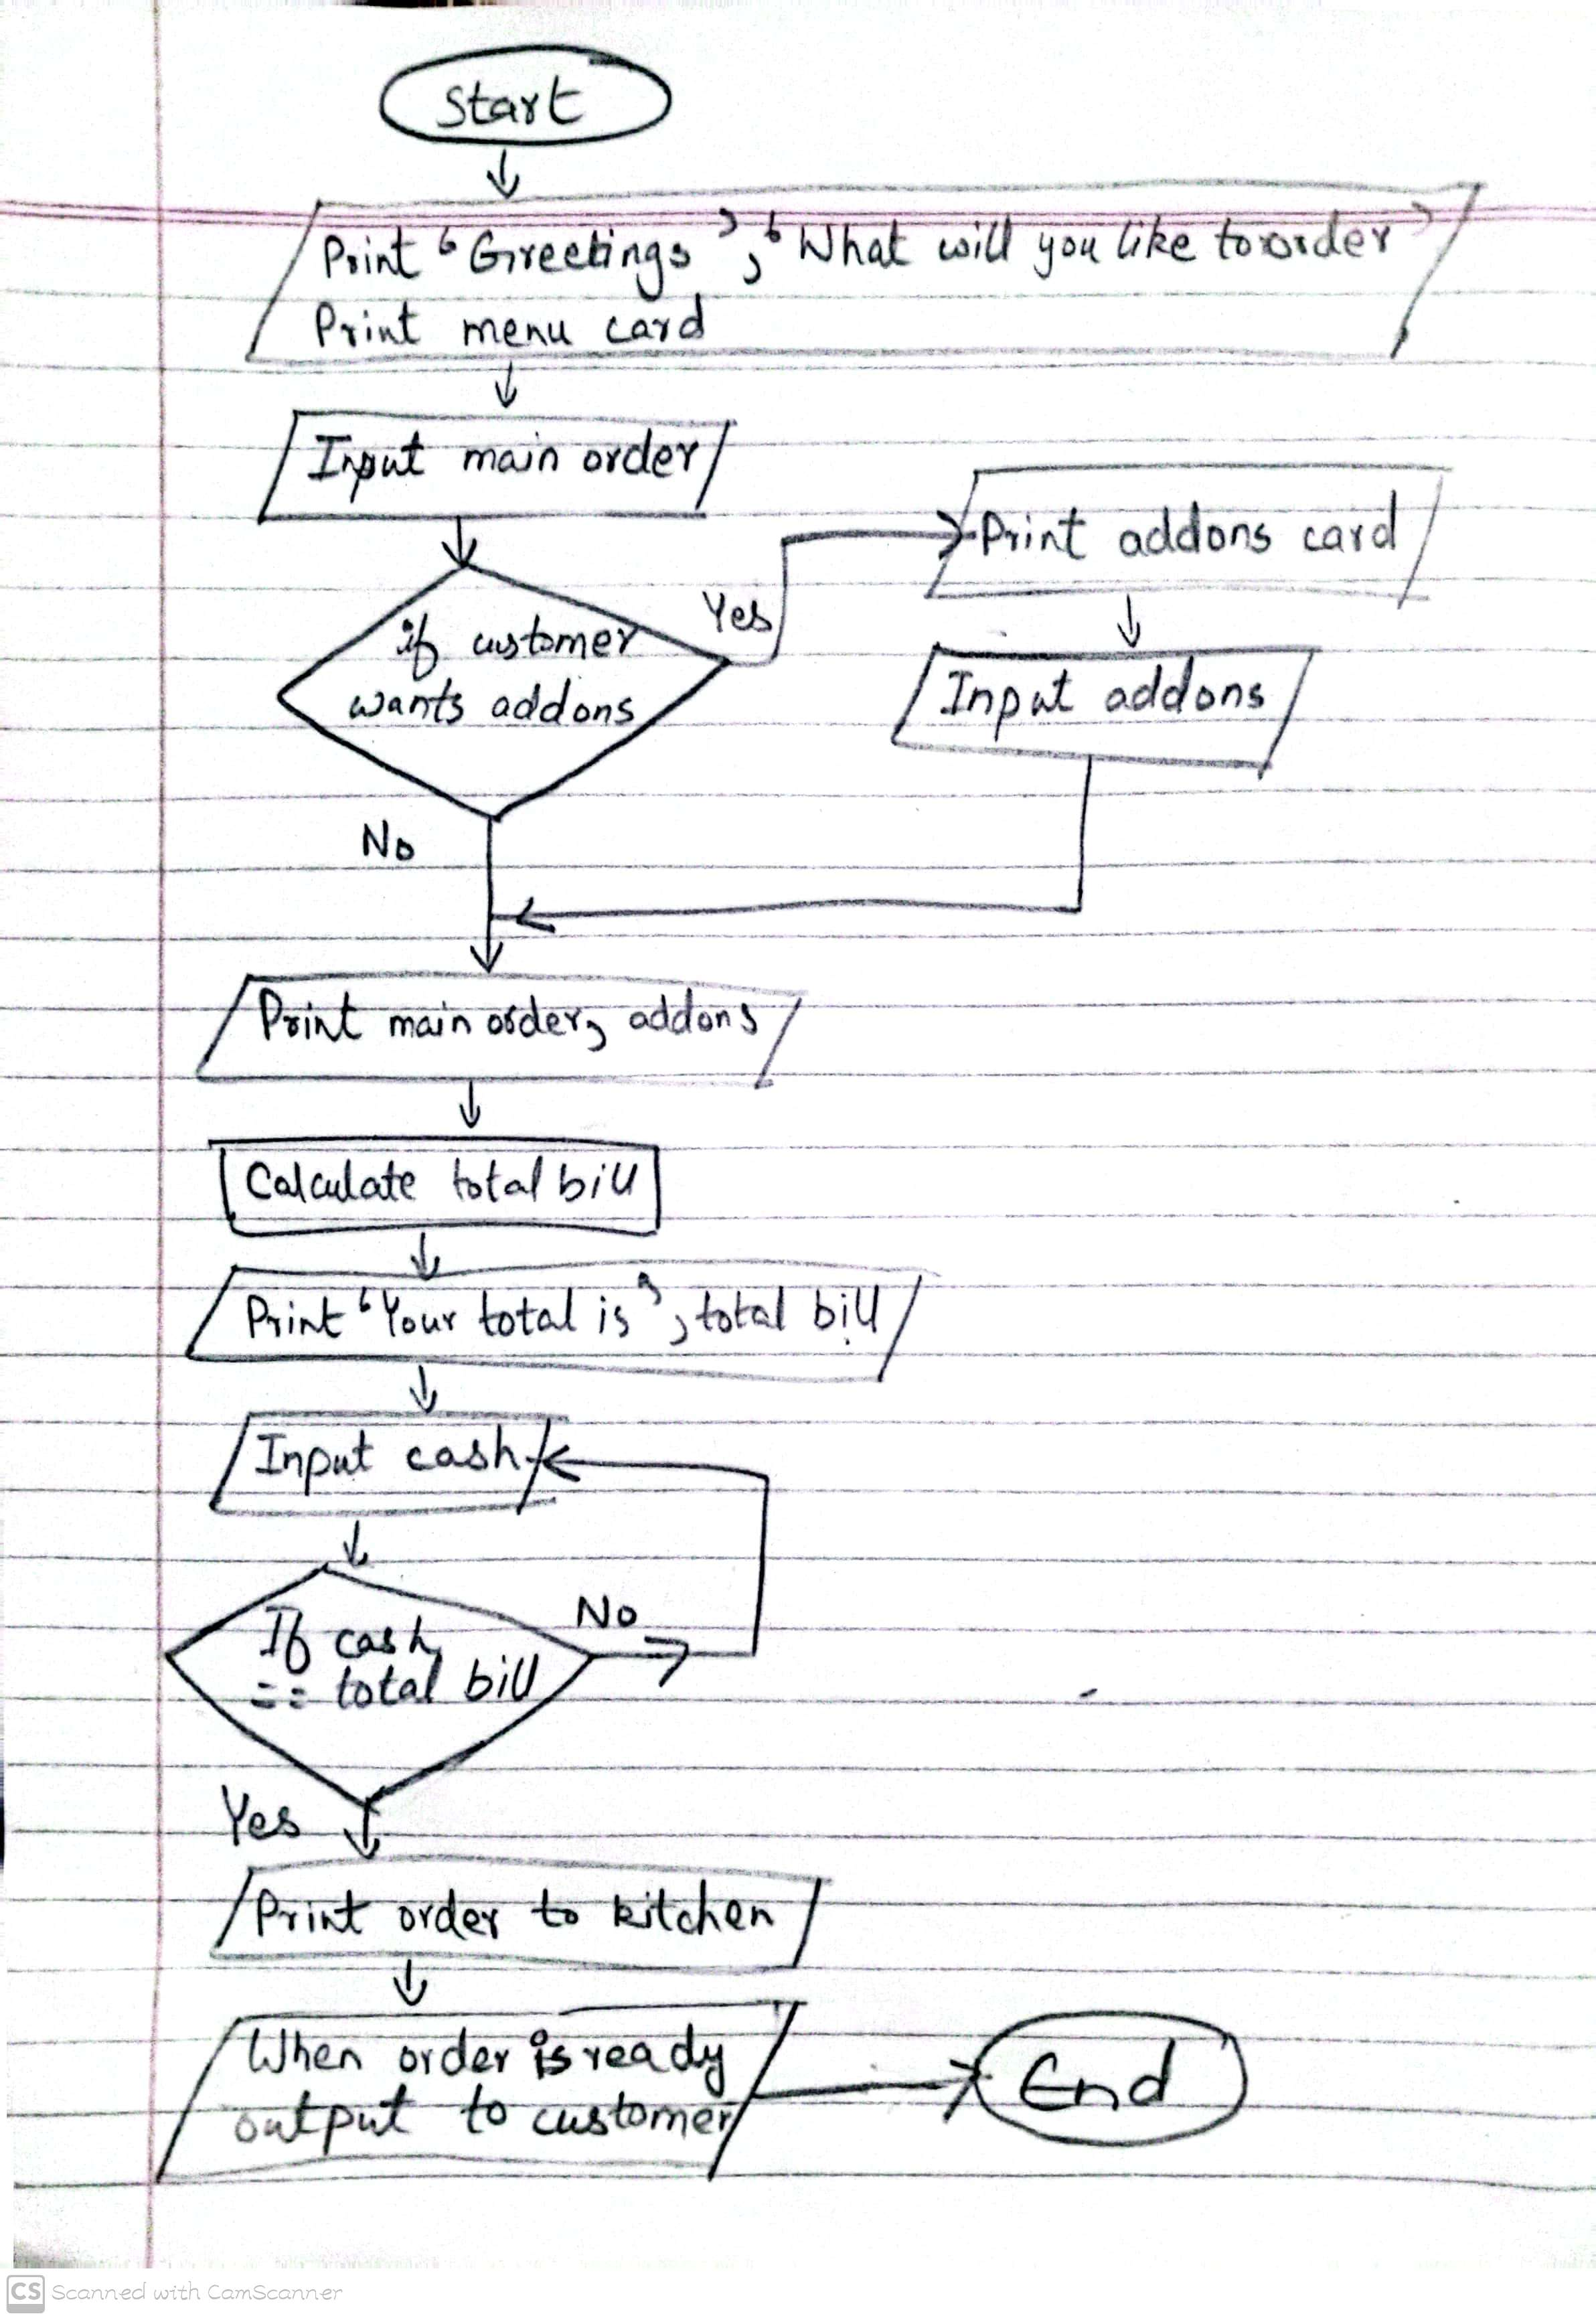 Start
Print ‘Greetings’, ‘What will you like to order’
Print menu card
Input main order
Print addons card
Yes
if customer
wants addons
Input addons
No
Print main order, addons
Calculate total bill
Print ‘Your total is’, total bill
Input cash
No
If cash
== total bill
Yes
Print order to kitchen
When order is ready
output to customer
End
CS Scanned with CamScanner